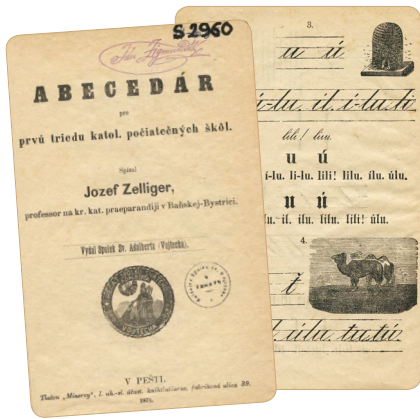 S 2960
ABECEDÁR
pre
prvú triedu katol. počiatečných škôl.
Spísal
Jozef Zelliger,
professor na kr. kat. praeparandiji v Baňskej-Bystrici.
Vydal Spolok Sv. Adalberta (Vojtecha).
V PEŠTI.
Tlačou „Minervy",
3.
u ú
i-lu, il, i-lu, li
lili! lnu.
u ú
í-lu. li-lu. lili! lilu. ílu. úlu.
u ú
lu. il. ílu. lilu. lili! úlu.
4.
t
úlu, tu, tú.